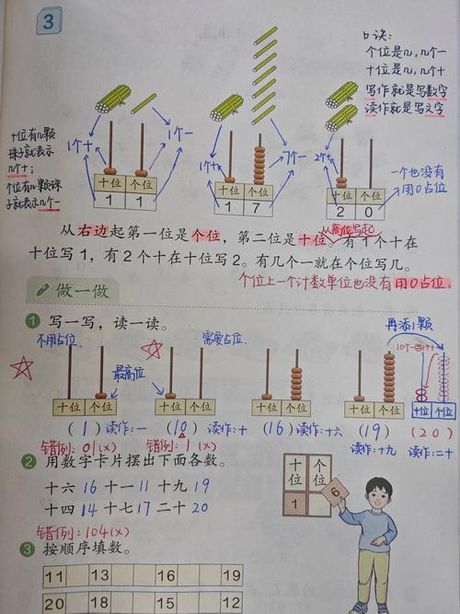 3
口诀:
个位是几,几个一
十位是几,几个十
写作就是写数字
读作就是写文字
十位有几颗
珠子就表示
几个十;
个位有几颗珠
子就表示几个一
1个十
1个一
1个十
7个一
2个十
一个也没有
用0占位
十位 个位
1 1
十位 个位
1 7
十位 个位
2 0
从右边起第一位是个位,第二位是十位。有1个十在
从高位写起
十位写1,有2个十在十位写2。有几个一就在个位写几。
个位上一个计数单位也没有用0占位.
做一做
1 写一写,读一读。
再添1颗
不用占位.
需要占位.
10个一=1个十
最高位
十位 个位
十位 个位
十位 个位
十位 个位
十位 个位
(1) 读作:一 (10) 读作:十 (16) 读作:十六 (19) (20)
读作:十九 读作:二十
错例:01(×) 错例:1(×)
2 用数字卡片摆出下面各数。
十六 16 十一 11 十九 19
十四 14 十七 17 二十 20
错例:104(×)
十位 个位
1
6
3 按顺序填数。
11 13 16 19
20 18 15 12